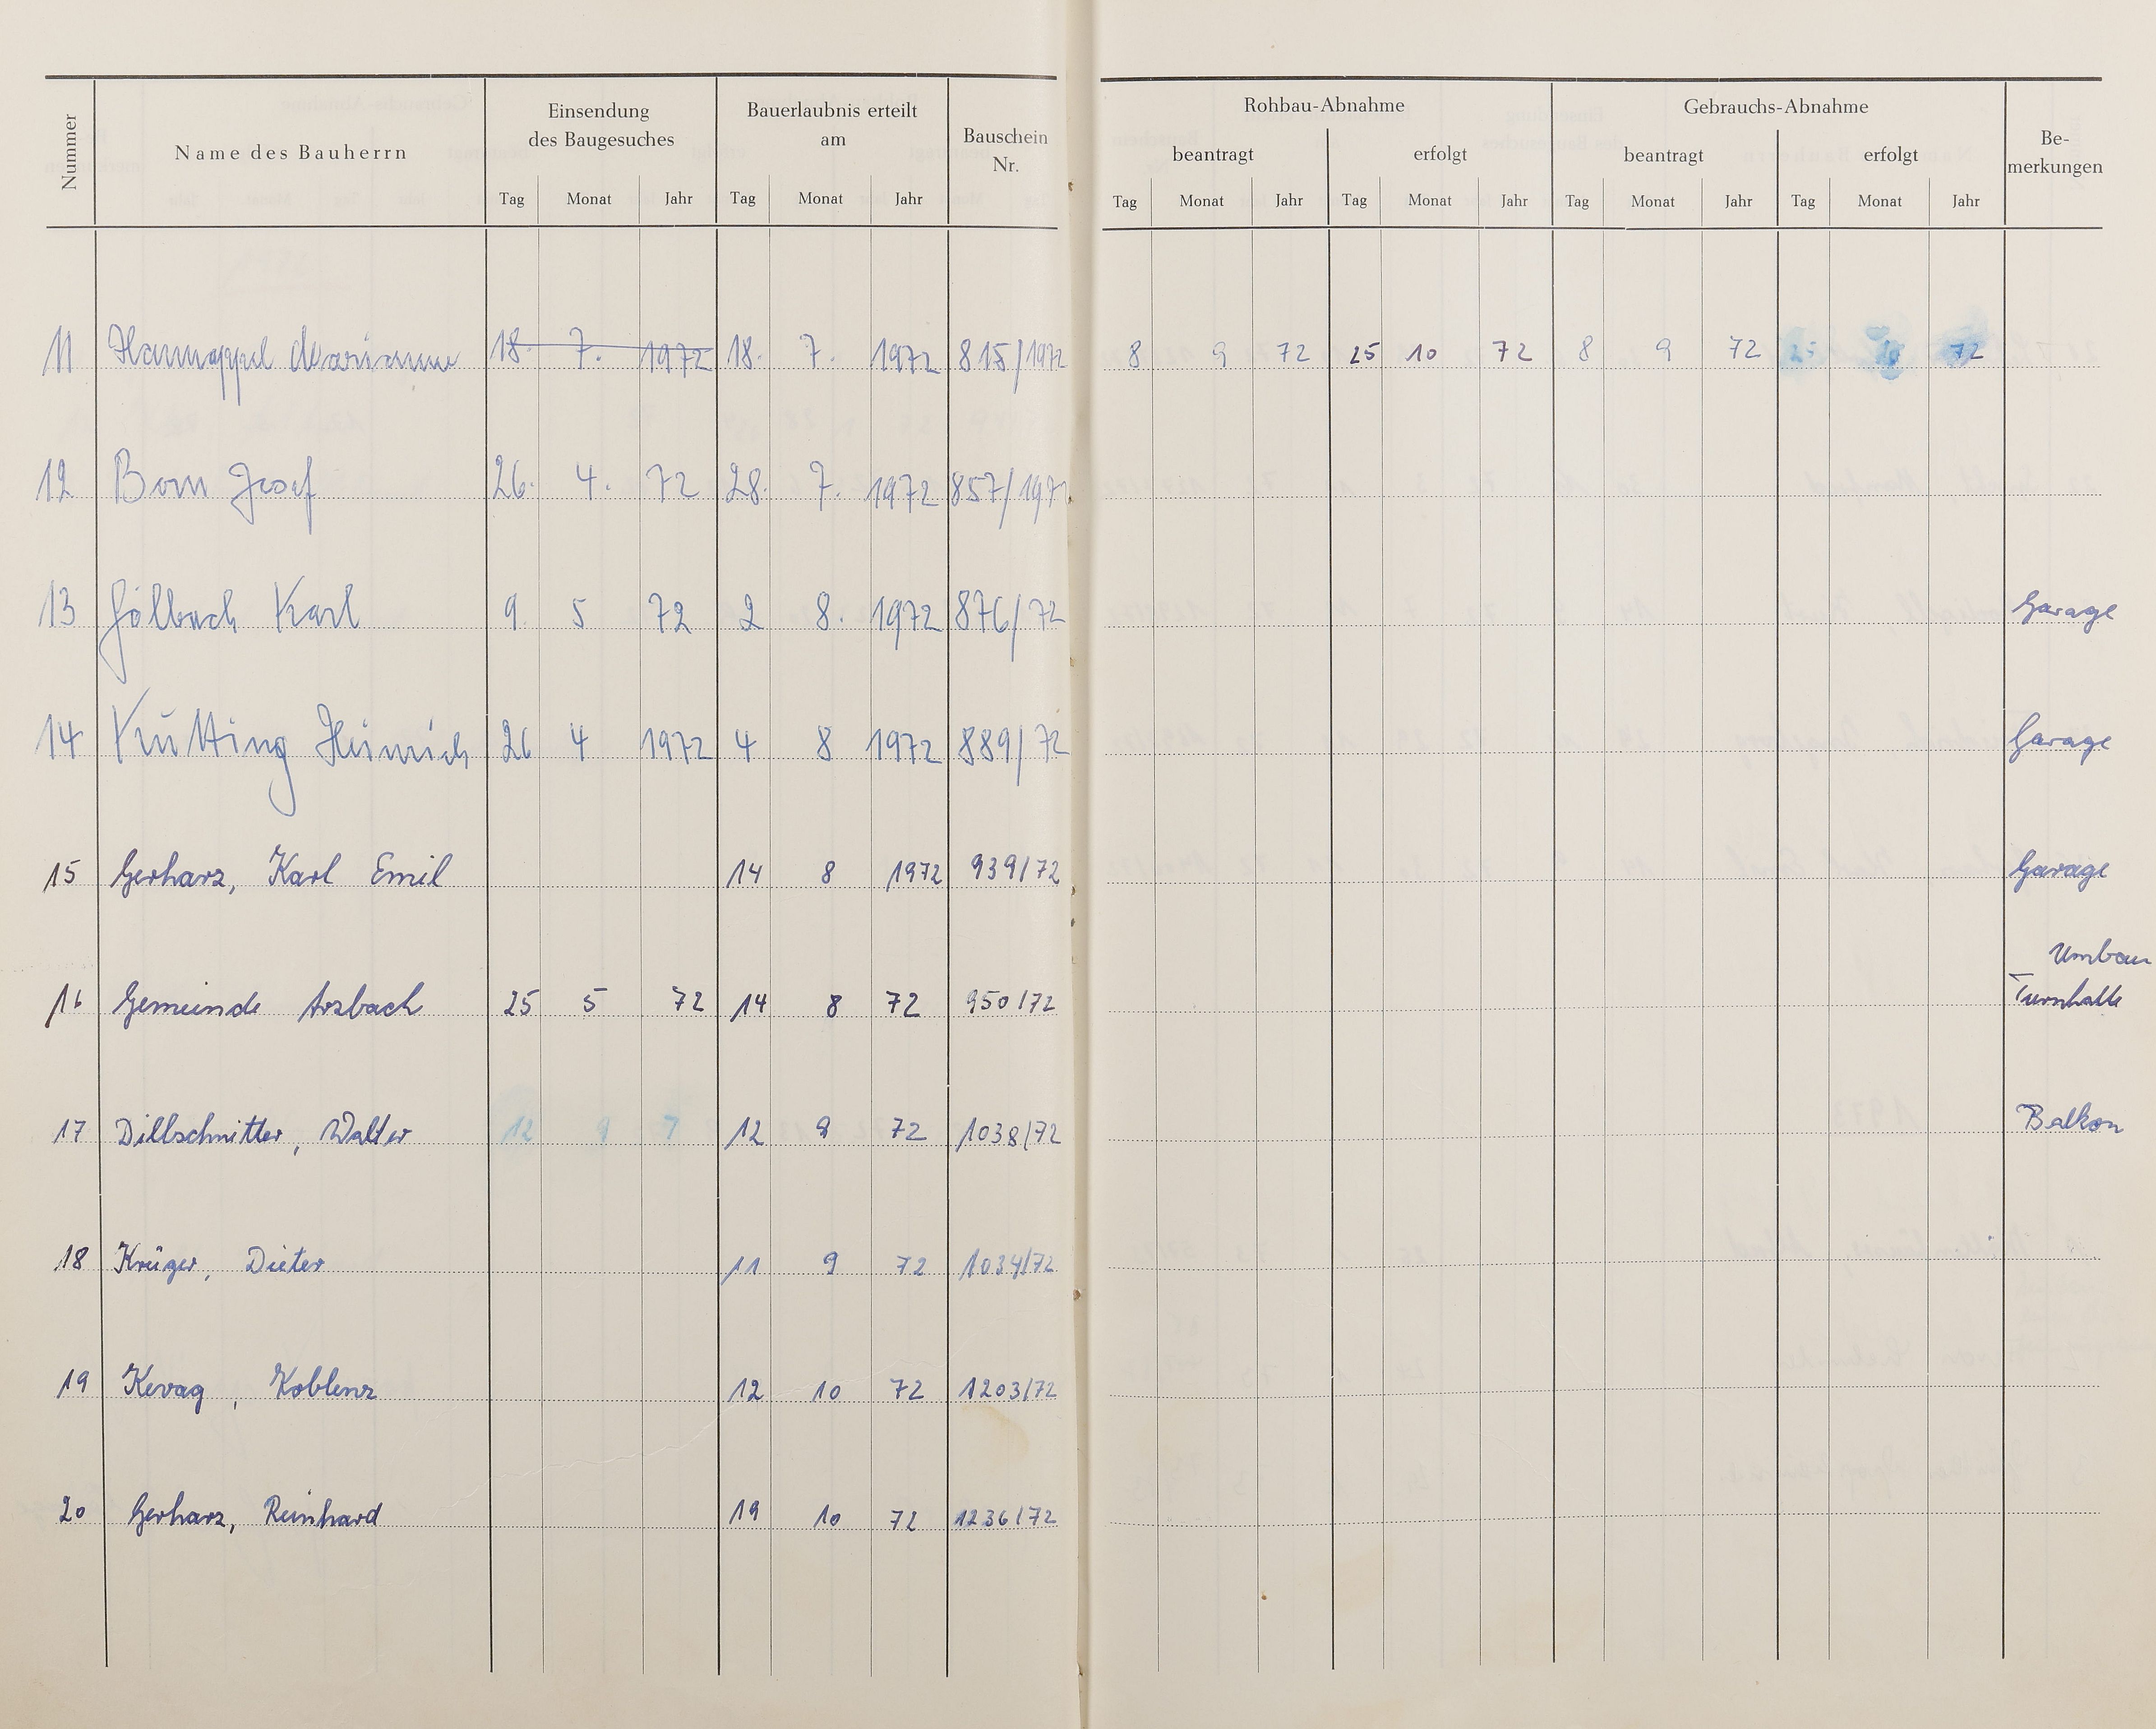 Nummer Name des Bauherrn Einsendung des Baugesuches Bauerlaubnis erteilt am Bauschein Nr. Rohbau-Abnahme Gebrauchs-Abnahme Be-merkungen
beantragt erfolgt beantragt erfolgt
Tag Monat Jahr Tag Monat Jahr Tag Monat Jahr Tag Monat Jahr Tag Monat Jahr Tag Monat Jahr
11 Hannappel Marianne 18. 7. 1972 18. 7. 1972 815/1972 8 9 72 25 10 72 8 9 72 25 10 72
12 Born Josef 26. 4. 72 28. 7. 1972 857/1972
13 Gölbach Karl 9. 5 72 2 8. 1972 876/72 Garage
14 Krütting Heinrich 26 4 1972 4 8 1972 889/72 Garage
15 Gerharz, Karl Emil 14 8 1972 939/72 Garage
16 Gemeinde Arzbach 25 5 72 14 8 72 950/72 Umbau Turnhalle
17 Dillschnitter, Walter 12 9 7 12 9 72 1038/72 Balkon
18 Krüger, Dieter 11 9 72 1034/72
19 Kevag, Koblenz 12 10 72 1203/72
20 Gerharz, Reinhard 19 10 72 1236/72